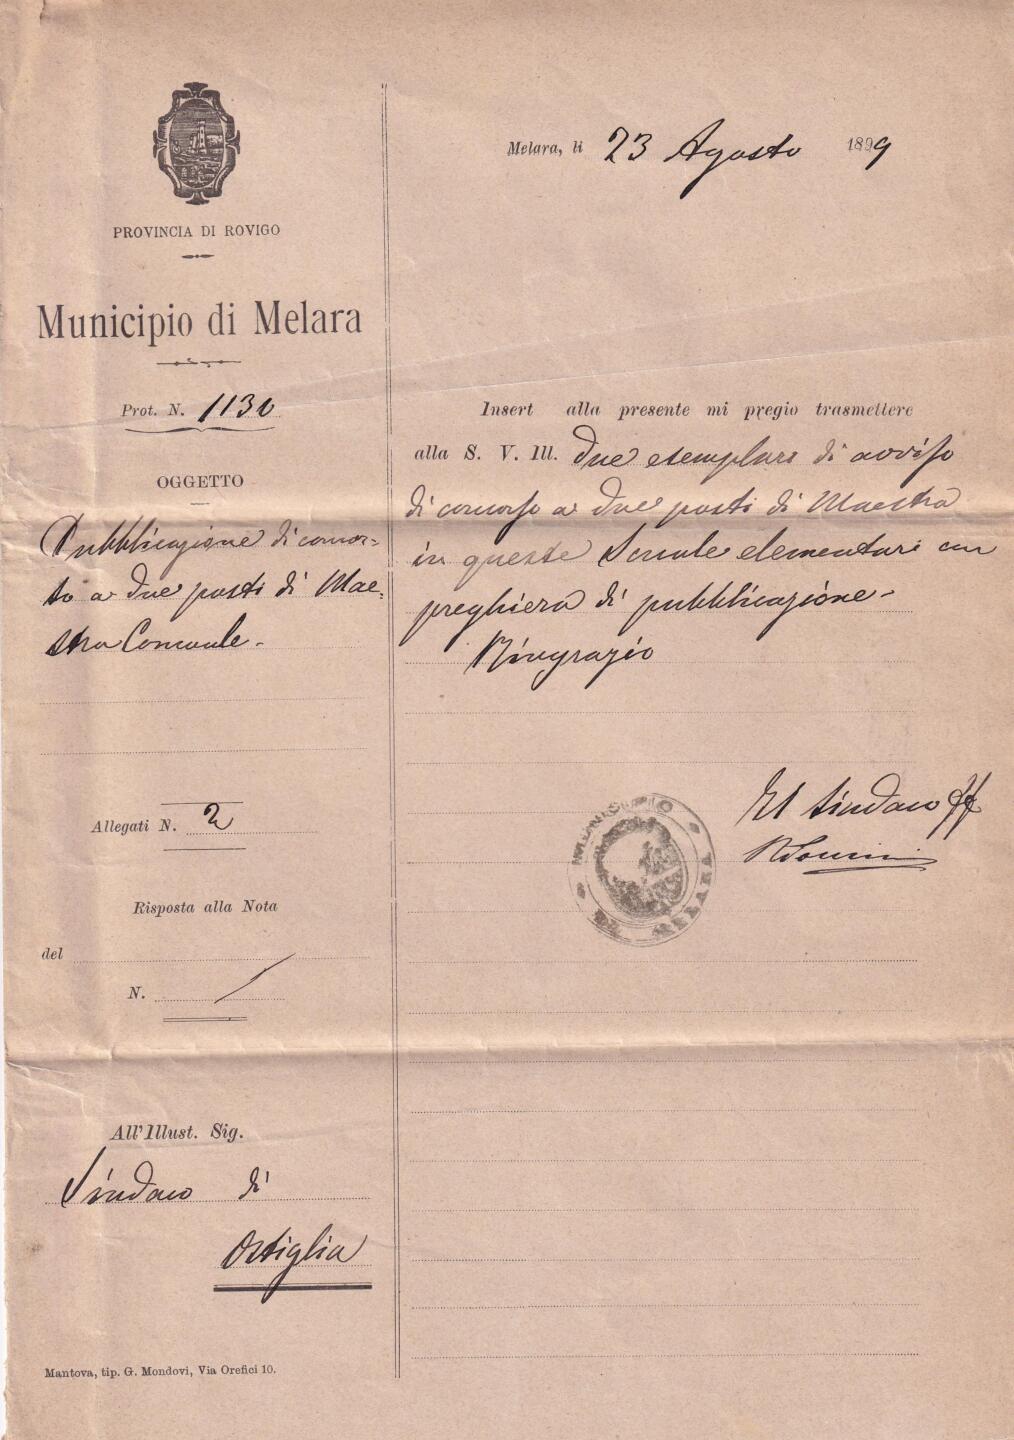 PROVINCIA DI ROVIGO
Municipio di Melara
Prot. N. 1130
OGGETTO
Pubblicazione di concor=
so a due posti di Mae=
stra Comunale.
Allegati N. 2
Risposta alla Nota
del
N.
All'Illust. Sig.
Sindaco di
Ostiglia
Mantova, tip. G. Mondovi, Via Orefici 10.
Melara, li 23 Agosto 1899
Insert alla presente mi pregio trasmettere
alla S. V. Ill. due esemplari di avviso
di concorso a due posti di Maestra
in queste Scuole elementari con
preghiera di pubblicazione.
Ringrazio
Il Sindaco ff
MUNICIPIO DI MELARA